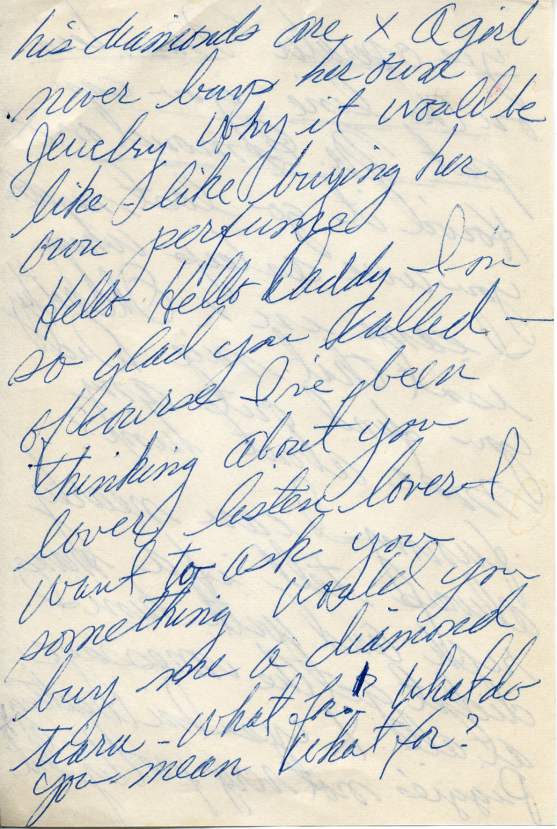 his diamonds are x A girl
never buys her own
Jewelry Why it would be
like - like buying her
own perfume
Hello Hello Daddy I'm
so glad you called —
of course I've been
thinking about you
lover, listen lover I
want to ask you
something would you
buy me a diamond
tiara - what for? What do
you mean what for?